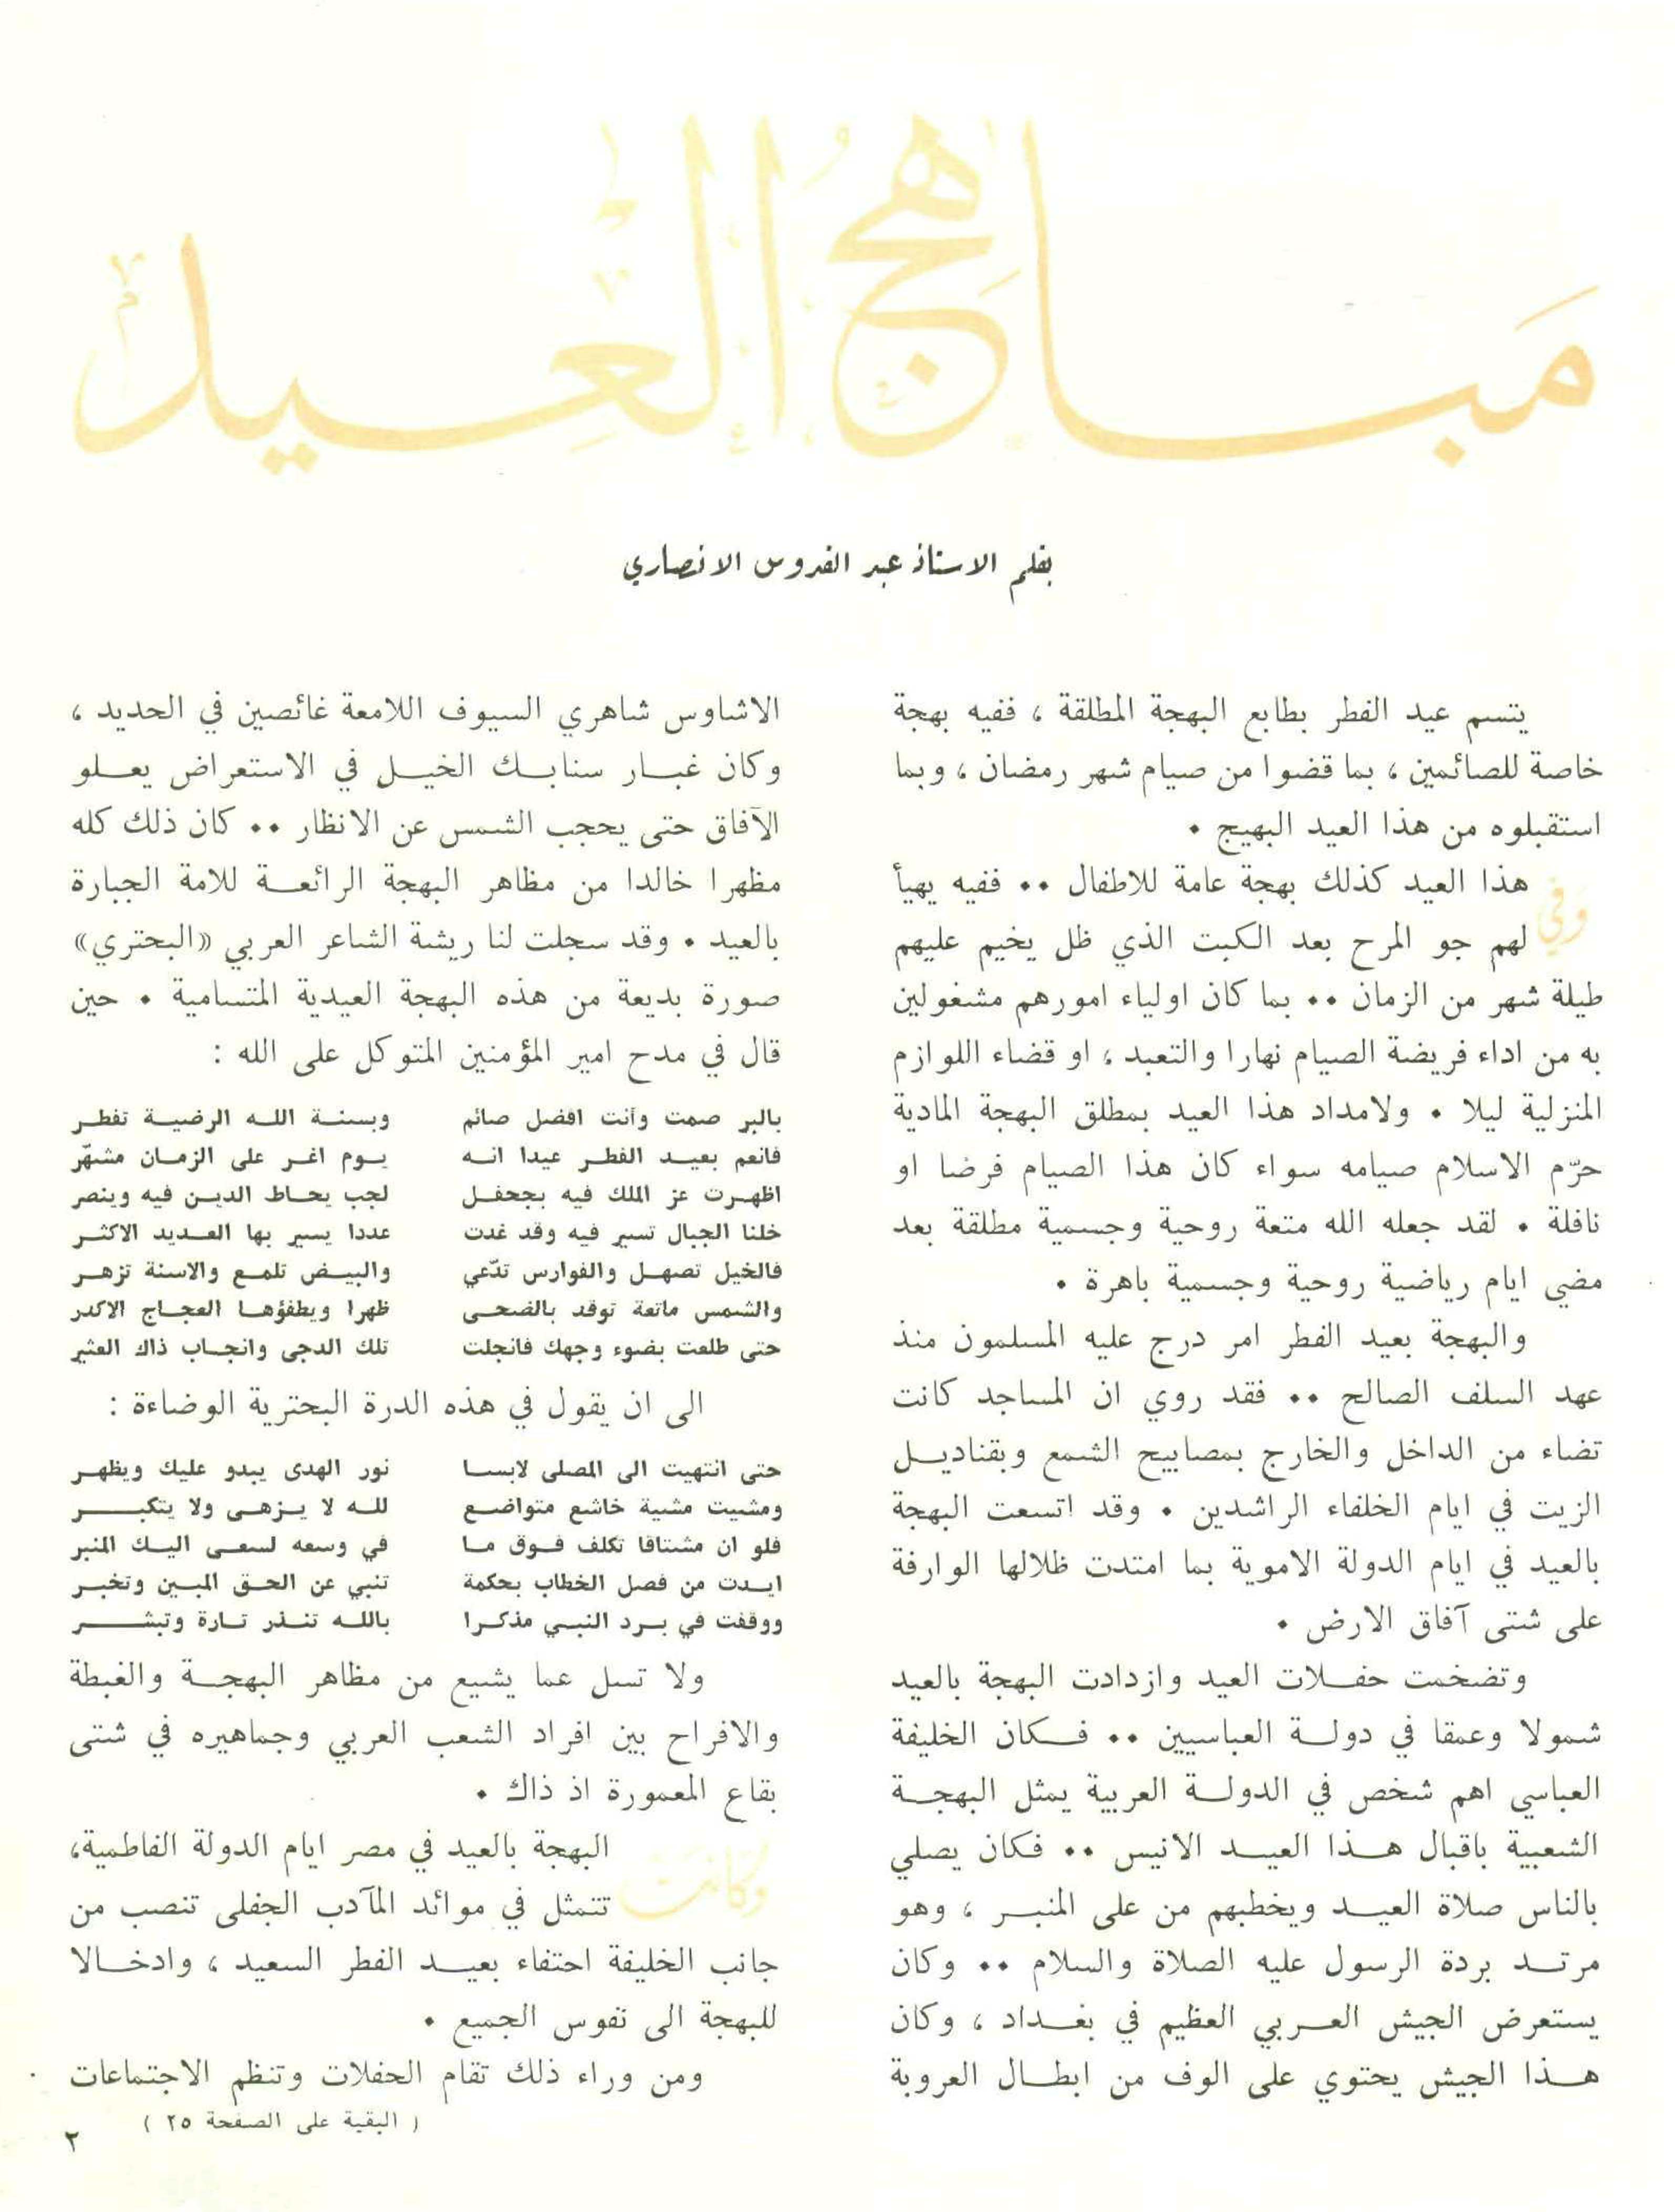 مَبَاهِجُ العِيد
بقلم الاستاذ عبد القدوس الانصاري
يتسم عيد الفطر بطابع البهجة المطلقة ، ففيه بهجة
خاصة للصائمين ، بما قضوا من صيام شهر رمضان ، وبما
استقبلوه من هذا العيد البهيج .
وفي هذا العيد كذلك بهجة عامة للاطفال .. ففيه يهيأ
لهم جو المرح بعد الكبت الذي ظل يخيم عليهم
طيلة شهر من الزمان .. بما كان اولياء امورهم مشغولين
به من اداء فريضة الصيام نهارا والتعبد ، او قضاء اللوازم
المنزلية ليلا . ولامداد هذا العيد بمطلق البهجة المادية
حرّم الاسلام صيامه سواء كان هذا الصيام فرضا او
نافلة . لقد جعله الله متعة روحية وجسمية مطلقة بعد
مضي ايام رياضية روحية وجسمية باهرة .
والبهجة بعيد الفطر امر درج عليه المسلمون منذ
عهد السلف الصالح .. فقد روي ان المساجد كانت
تضاء من الداخل والخارج بمصابيح الشمع وبقناديـل
الزيت في ايام الخلفاء الراشدين . وقد اتسعت البهجة
بالعيد في ايام الدولة الاموية بما امتدت ظلالها الوارفة
على شتى آفاق الارض .
وتضخمت حفـلات العيد وازدادت البهجة بالعيد
شمولا وعمقا في دولـة العباسيين .. فـكان الخليفة
العباسي اهم شخص في الدولـة العربية يمثل البهجـة
الشعبية باقبال هـذا العيـد الانيس .. فكان يصلي
بالناس صلاة العيـد ويخطبهم من على المنبـر ، وهو
مرتـد بردة الرسول عليه الصلاة والسلام .. وكان
يستعرض الجيش العـربي العظيم في بغـداد ، وكان
هـذا الجيش يحتوي على الوف من ابطـال العروبة
الاشاوس شاهري السيوف اللامعة غائصين في الحديد ،
وكان غبـار سنابـك الخيـل في الاستعراض يعـلو
الآفاق حتى يحجب الشمس عن الانظار .. كان ذلك كله
مظهرا خالدا من مظاهر البهجة الرائعـة للامة الجبارة
بالعيد . وقد سجلت لنا ريشة الشاعر العربي «البحتري»
صورة بديعة من هذه البهجة العيدية المتسامية . حين
قال في مدح امير المؤمنين المتوكل على الله :
بالبر صمت وأنت افضل صائم وبسنـة اللـه الرضيـة تفطـر
فانعم بعيـد الفطـر عيدا انـه يـوم اغـر على الزمـان مشهّر
اظهـرت عز الملك فيه بجحفـل لجب يحـاط الديـن فيه وينصر
خلنا الجبال تسير فيه وقد غدت عددا يسير بها العـديد الاكثـر
فالخيل تصهـل والفوارس تدّعي والبيـض تلمـع والاسنة تزهـر
والشمس ماتعة توقد بالضحـى ظهرا ويطفؤهـا العجـاج الاكدر
حتى طلعت بضوء وجهك فانجلت تلك الدجى وانجـاب ذاك العثير
الى ان يقول في هذه الدرة البحترية الوضاءة :
حتى انتهيت الى المصلى لابسـا نور الهدى يبدو عليك ويظهـر
ومشيت مشية خاشع متواضـع للـه لا يـزهـى ولا يتكبـر
فلو ان مشتاقا تكلف فـوق مـا في وسعه لسعـى اليـك المنبر
ايـدت من فصل الخطاب بحكمة تنبي عن الحـق المبـين وتخبـر
ووقفت في بـرد النبـي مذكـرا باللـه تنـذر تـارة وتبشـر
ولا تسل عما يشيع من مظاهر البهجـة والغبطة
والافراح بين افراد الشعب العربي وجماهيره في شتى
بقاع المعمورة اذ ذاك .
وكانت البهجة بالعيد في مصر ايام الدولة الفاطمية،
تتمثل في موائد المآدب الجفلى تنصب من
جانب الخليفة احتفاء بعيـد الفطر السعيد ، وادخـالا
للبهجة الى نفوس الجميع .
ومن وراء ذلك تقام الحفلات وتنظم الاجتماعات
( البقية على الصفحة ٢٥ )
٢